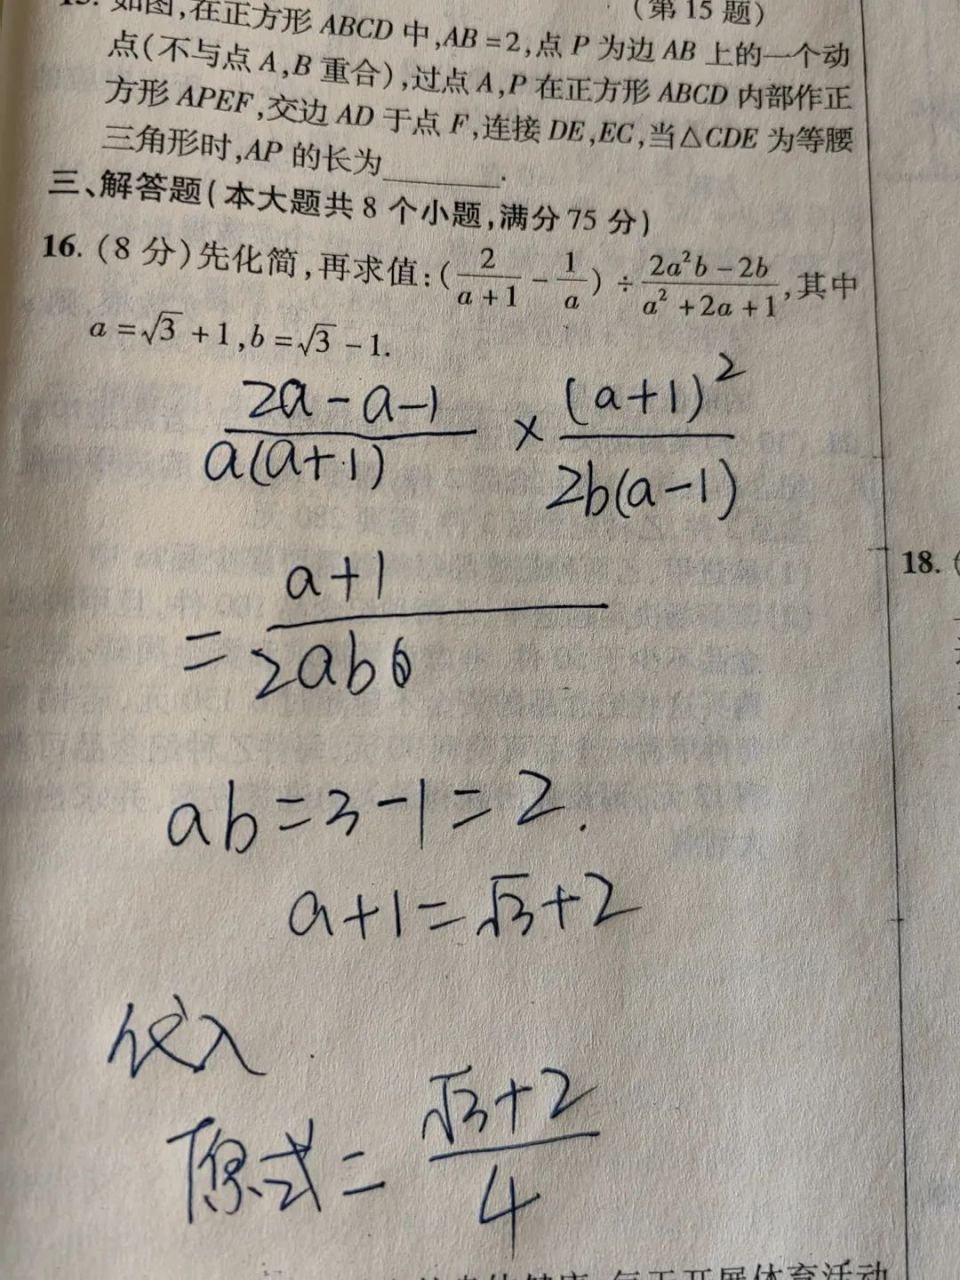 (第 15 题)
如图,在正方形 ABCD 中,AB=2,点 P 为边 AB 上的一个动
点(不与点 A,B 重合),过点 A,P 在正方形 ABCD 内部作正
方形 APEF,交边 AD 于点 F,连接 DE,EC,当△CDE 为等腰
三角形时,AP 的长为________.
三、解答题(本大题共 8 个小题,满分 75 分)
16. (8 分)先化简,再求值:(2/(a+1) - 1/a) ÷ (2a²b-2b)/(a²+2a+1),其中
a=√3+1,b=√3-1.
(2a-a-1)/(a(a+1)) × (a+1)²/(2b(a-1))
= (a+1)/(2ab)
18.
ab=3-1=2.
a+1=√3+2
代入
原式=(√3+2)/4